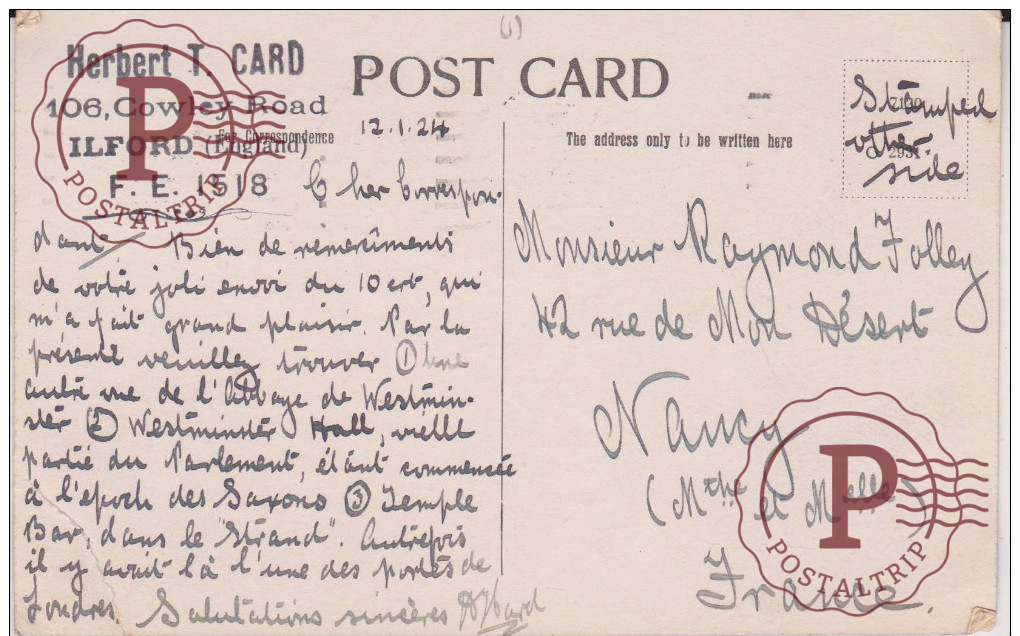 (1)
Herbert T. CARD
106, Cowley Road
ILFORD (England)
F. E. 1518
POST CARD
For Correspondence
12.1.24
The address only to be written here
Stamped
other
side
Cher Correspon-
dant Bien de remerciments
de votre joli envoi du 10 crt, qui
m'a fait grand plaisir. Par la
présente veuillez trouver (1) Une
autre vue de l'Abbaye de Westmin-
ster (2) Westminster Hall, vieille
partie du Parlement, étant commencée
à l'epoch des Saxons (3) Temple
Bar, dans le "Strand". Autrefois
il y avait là l'une des portes de
Londres. Salutations sincères HTCard
Monsieur Raymond Folley
42 rue de Mon Désert
Nancy
(Mthe et Mselle)
France.
P
POSTALTRIP
P
POSTALTRIP